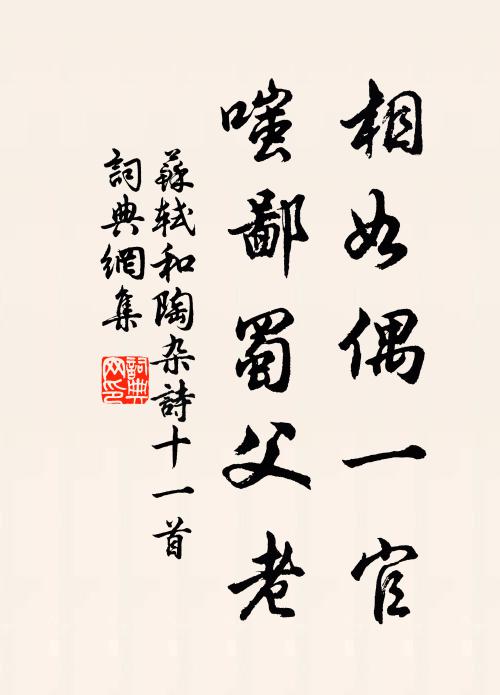 相如偶一官
嗤鄙蜀父老
蘇軾和陶杂詩十一首
詞典網集
詞典网印